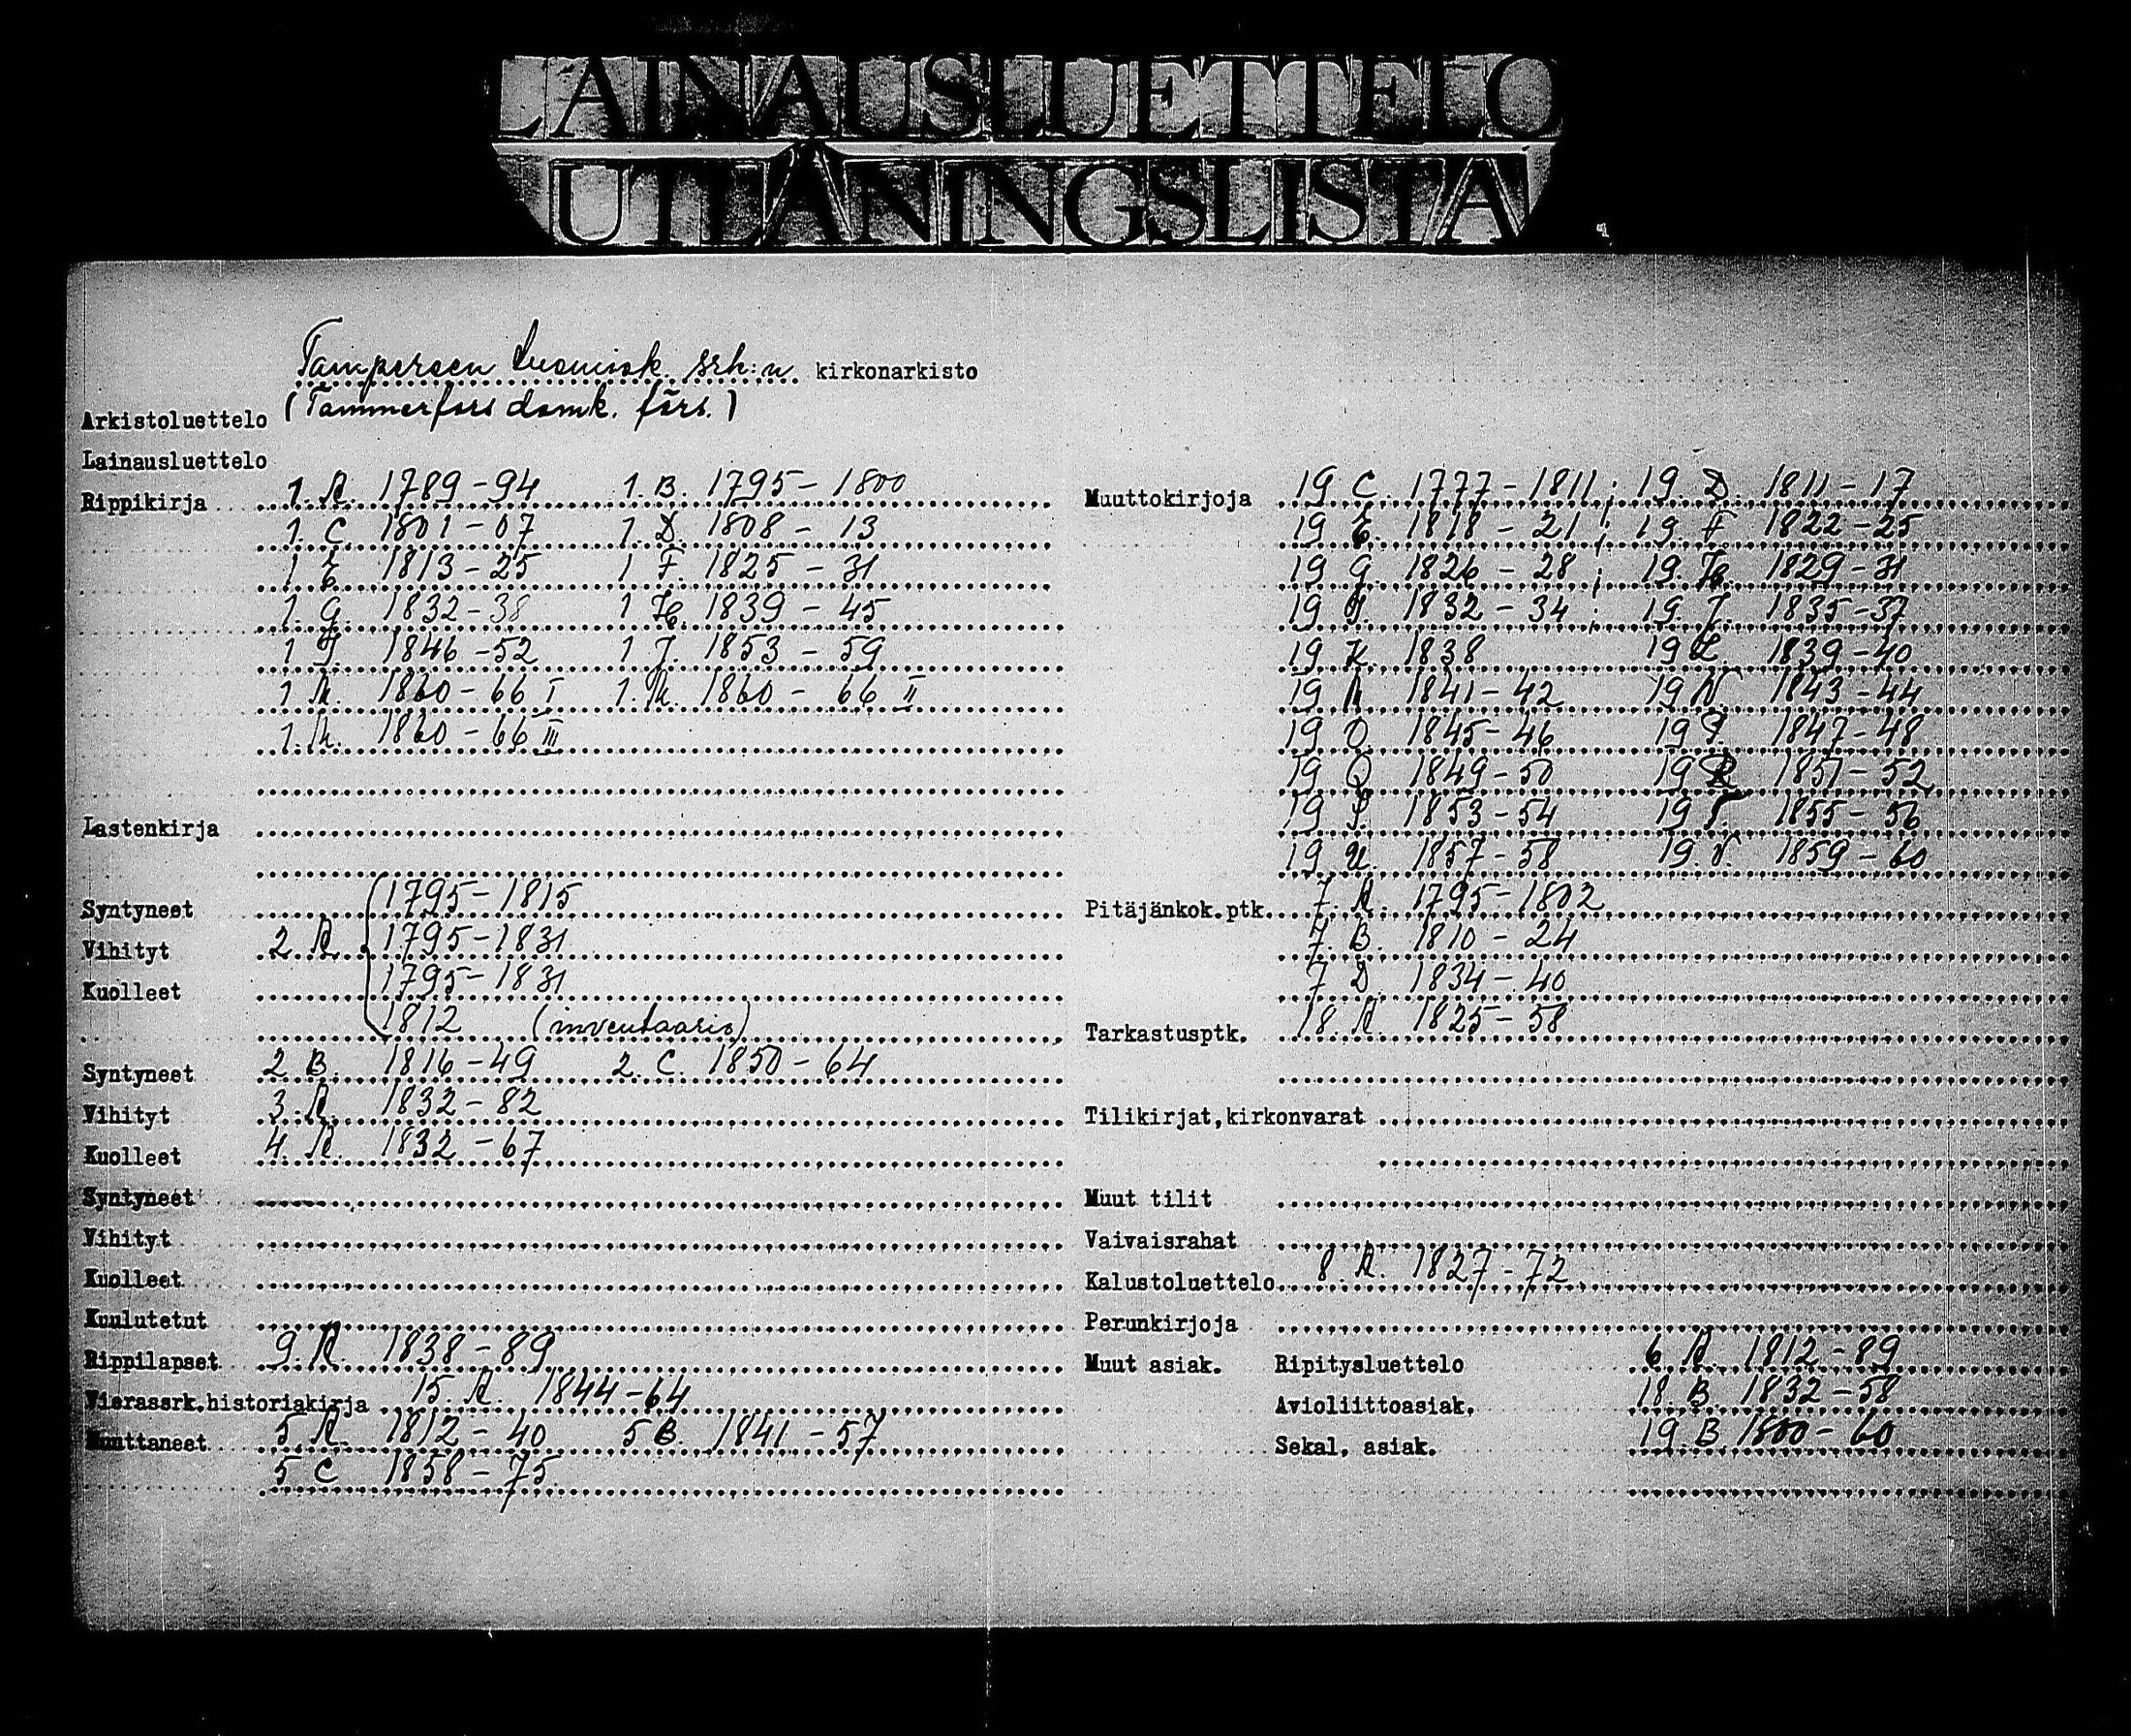 LAINAUSLUETTELO
UTLÅNINGSLISTA
Tampereen tuomiok. srh:n kirkonarkisto
(Tammerfors domk. förs.)
Arkistoluettelo
Lainausluettelo
Rippikirja 1. A. 1789-94 1. B. 1795-1800
1. C. 1801-07 1. D. 1808-13
1 E 1813-25 1 F. 1825-31
1. G. 1832-38 1 H 1839-45
1 I. 1846-52 1 J. 1853-59
1 K. 1860-66 I 1. K. 1860-66 II
1. K. 1860-66 III
Lastenkirja
Syntyneet 1795-1815
Vihityt 2. A. 1795-1831
Kuolleet 1795-1831
1812 (inventaario)
Syntyneet 2 B. 1816-49 2. C. 1850-64
Vihityt 3. A. 1832-82
Kuolleet 4. A. 1832-67
Syntyneet
Vihityt
Kuolleet
Kuulutetut
Rippilapset 9. A. 1838-89
Vierassrk.historiakirja 15. A. 1844-64
Muuttaneet 5. A. 1812-40 5 B. 1841-57
5 C 1858-75
Muuttokirjoja 19 C. 1777-1811; 19. D. 1811-17
19 E. 1818-21; 19. F 1822-25
19 G. 1826-28; 19. H. 1829-31
19 I. 1832-34; 19. J. 1835-37
19 K. 1838 19 L. 1839-40
19 M 1841-42 19 N. 1843-44
19 O. 1845-46 19 P. 1847-48
19 Q 1849-50 19 R 1851-52
19 S. 1853-54 19 T. 1855-56
19 U. 1857-58 19. V. 1859-60
Pitäjänkok.ptk. 7. A. 1795-1802
7. B. 1810-24
7 D. 1834-40
Tarkastusptk. 18. A. 1825-58
Tilikirjat,kirkonvarat
Muut tilit
Vaivaisrahat
Kalustoluettelo 8. A. 1827-72
Perunkirjoja
Muut asiak. Ripitysluettelo 6 A. 1812-89
Avioliittoasiak. 18. B. 1832-58
Sekal. asiak. 19. B 1800-60